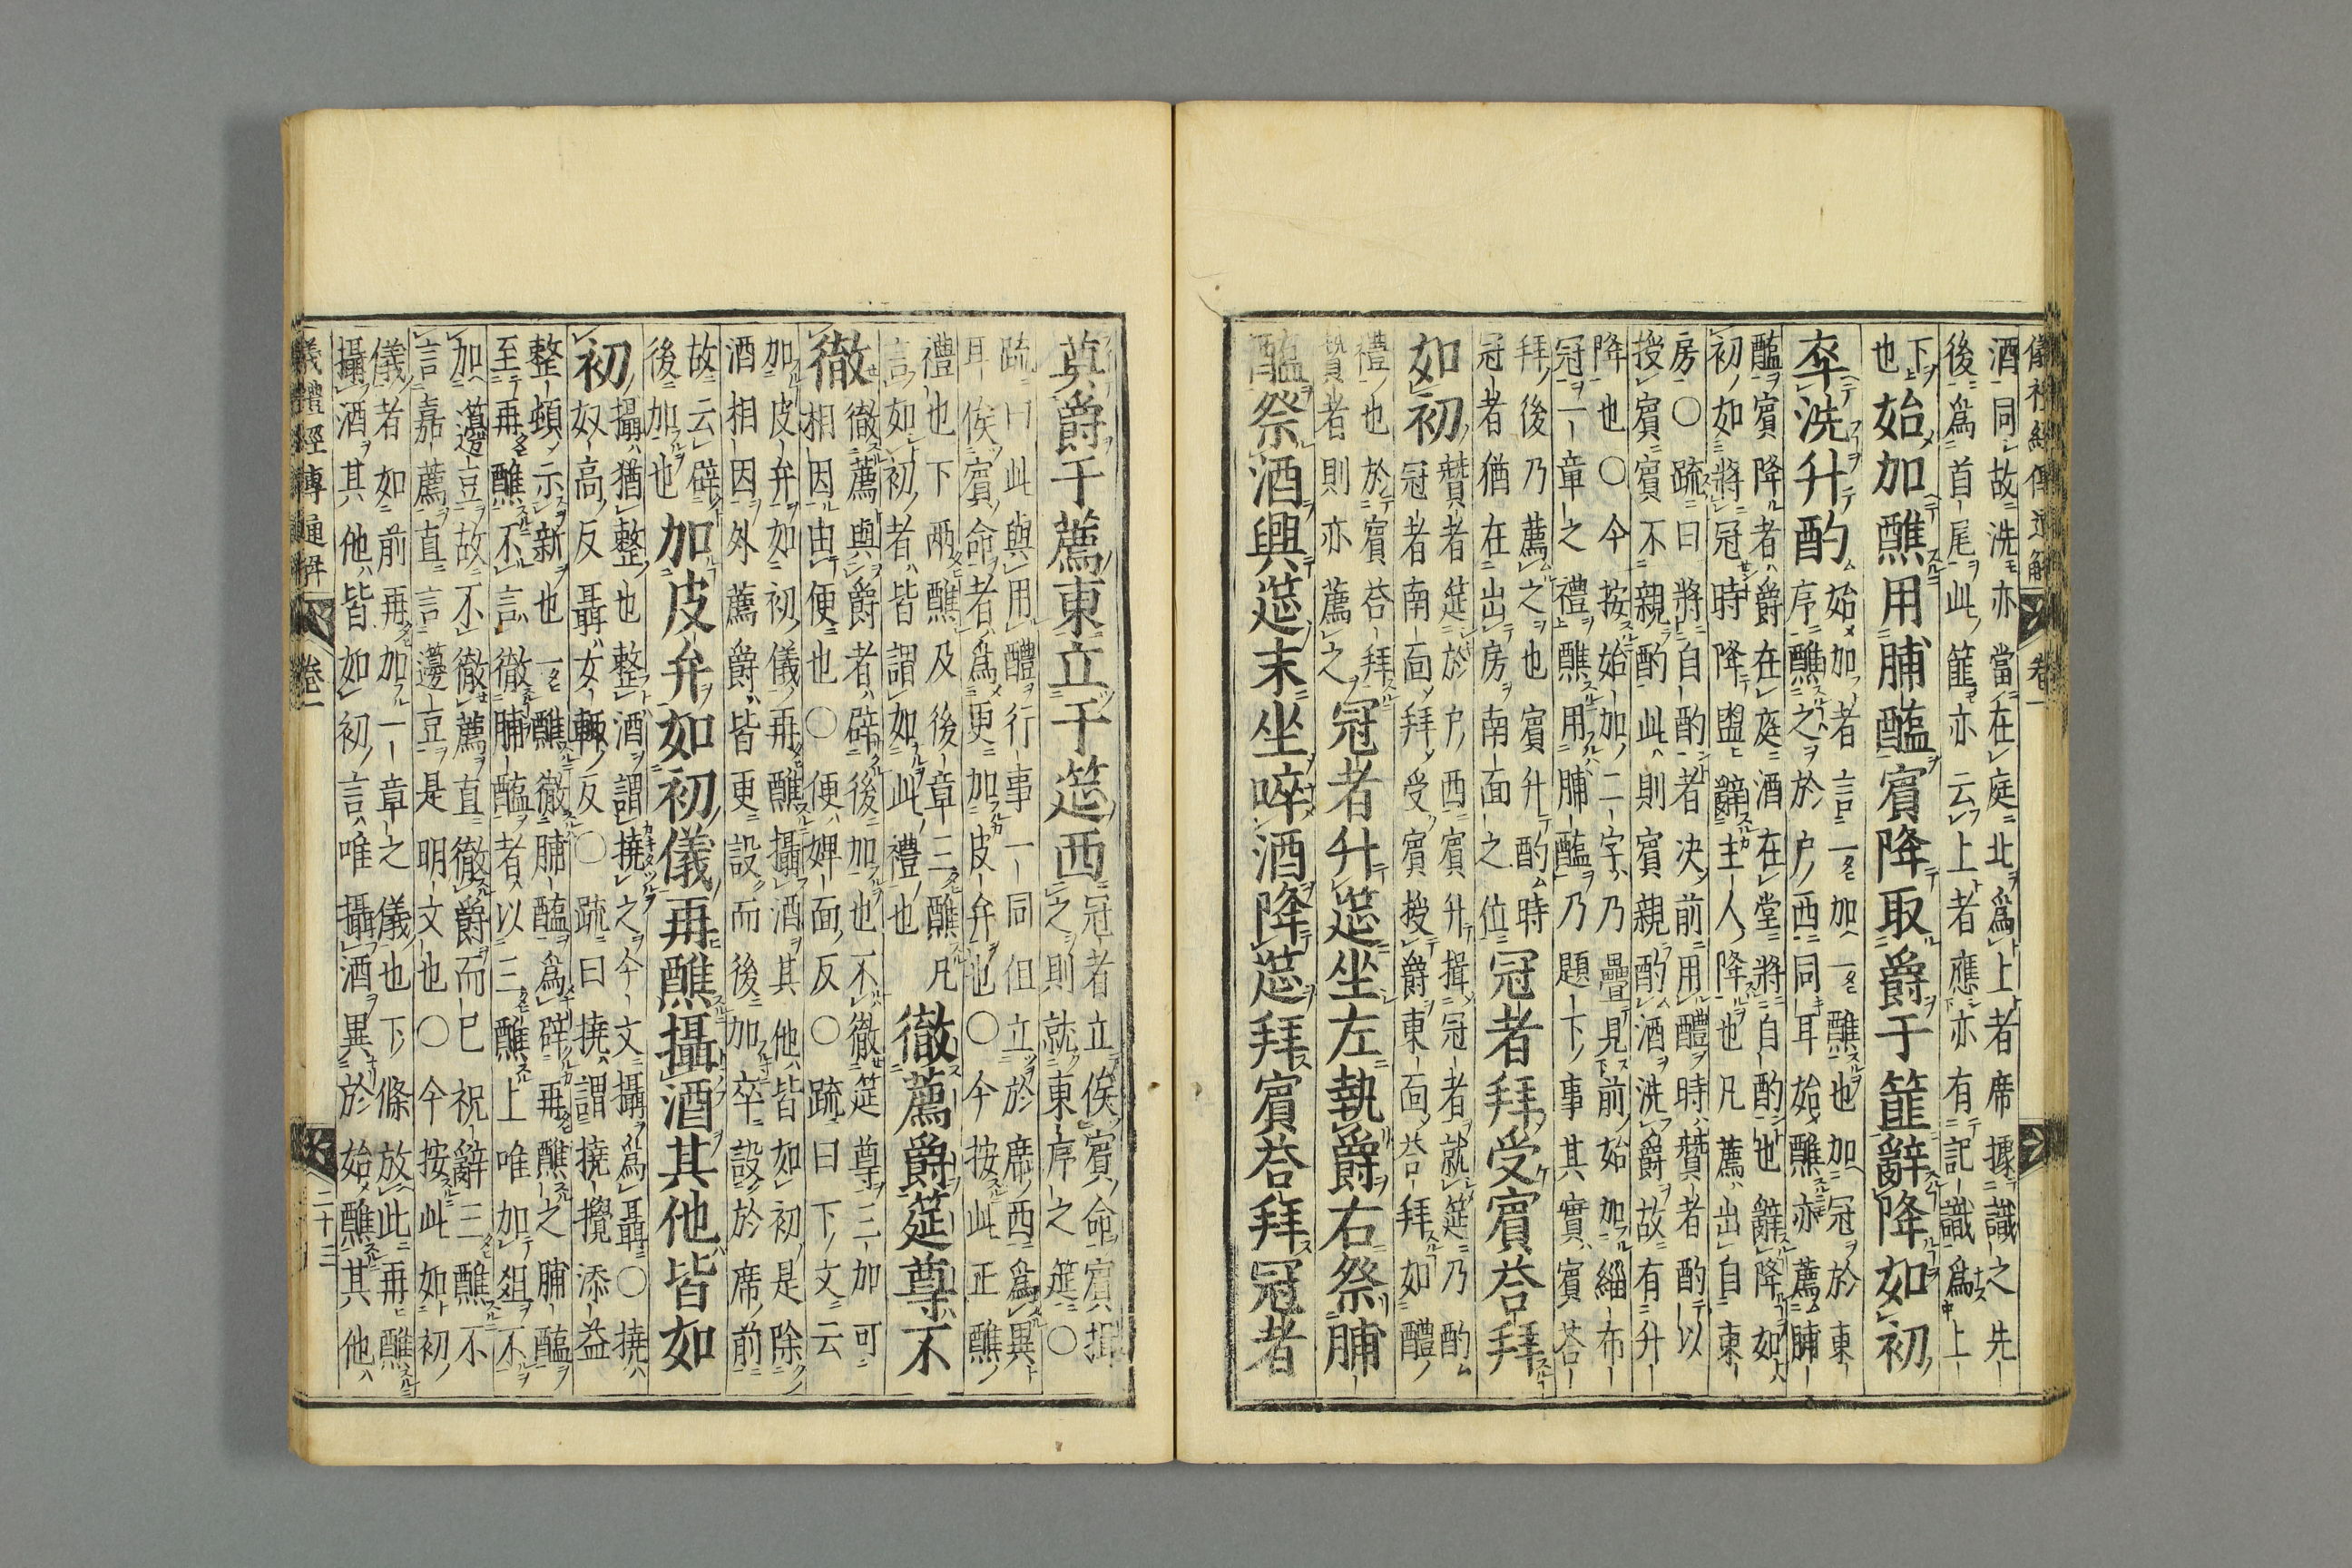 儀禮經傳通解 卷一
酒同故洗亦當在庭北爲上者席據識之先
後爲首尾此篚亦云上者應亦有記識爲上
下
也
始加醮用脯醢賓降取爵于篚辭降如初
卒洗升酌
始加者言一加一醮也加冠於東
序醮之於户西同耳始醮亦薦脯
醢賓降者爵在庭酒在堂將自酌也辭降如
初如將冠時降盥辭主人降也凡薦出自東
房○疏曰將自酌者决前用醴時贊者酌以
授賓賓不親酌此則賓親酌酒洗爵故有升
降也○今按始加二字乃疊見前始加緇布
冠一章之禮醮用脯醢乃題下事其實賓荅
拜後乃薦之也賓升酌時
冠者猶在出房南面之位
冠者拜受賓荅拜
如初
贊者筵於户西賓升揖冠者就筵乃酌
冠者南面拜受賓授爵東面荅拜如醴
禮也於賓荅拜
贊者則亦薦之
冠者升筵坐左執爵右祭脯
醢祭酒興筵末坐啐酒降筵拜賓荅拜冠者
奠爵于薦東立于筵西
冠者立俟賓命賓揖
之則就東序之筵○
疏曰此與用醴行事一同但立於席西爲異
耳俟賓命者爲更加皮弁也○今按此正醮
禮也下兩醮及後章三醮凡
言如初者皆謂如此禮也
徹薦爵筵尊不
徹
徹薦與爵者辟後加也不徹筵尊三加可
相因由便也○便婢面反○疏曰下文云
加皮弁如初儀再醮攝酒其他皆如初是除
酒相因外薦爵皆更設而後加卒設於席前
故云辟
後加也
加皮弁如初儀再醮攝酒其他皆如
初
攝猶整也整酒謂撓之今文攝爲聶○撓
奴高反聶女輒反○疏曰撓謂撓攪添益
整頓示新也一醮徹脯醢爲辟再醮之脯醢
至再醮不言徹脯醢者以三醮上唯加俎不
加籩豆故不徹薦直徹爵而已祝辭三醮不
言嘉薦直言籩豆是明文也○今按此如初
儀者如前再加一章之儀也下條放此再醮
攝酒其他皆如初言唯攝酒異於始醮其他
儀禮經傳通解 卷一 二十二